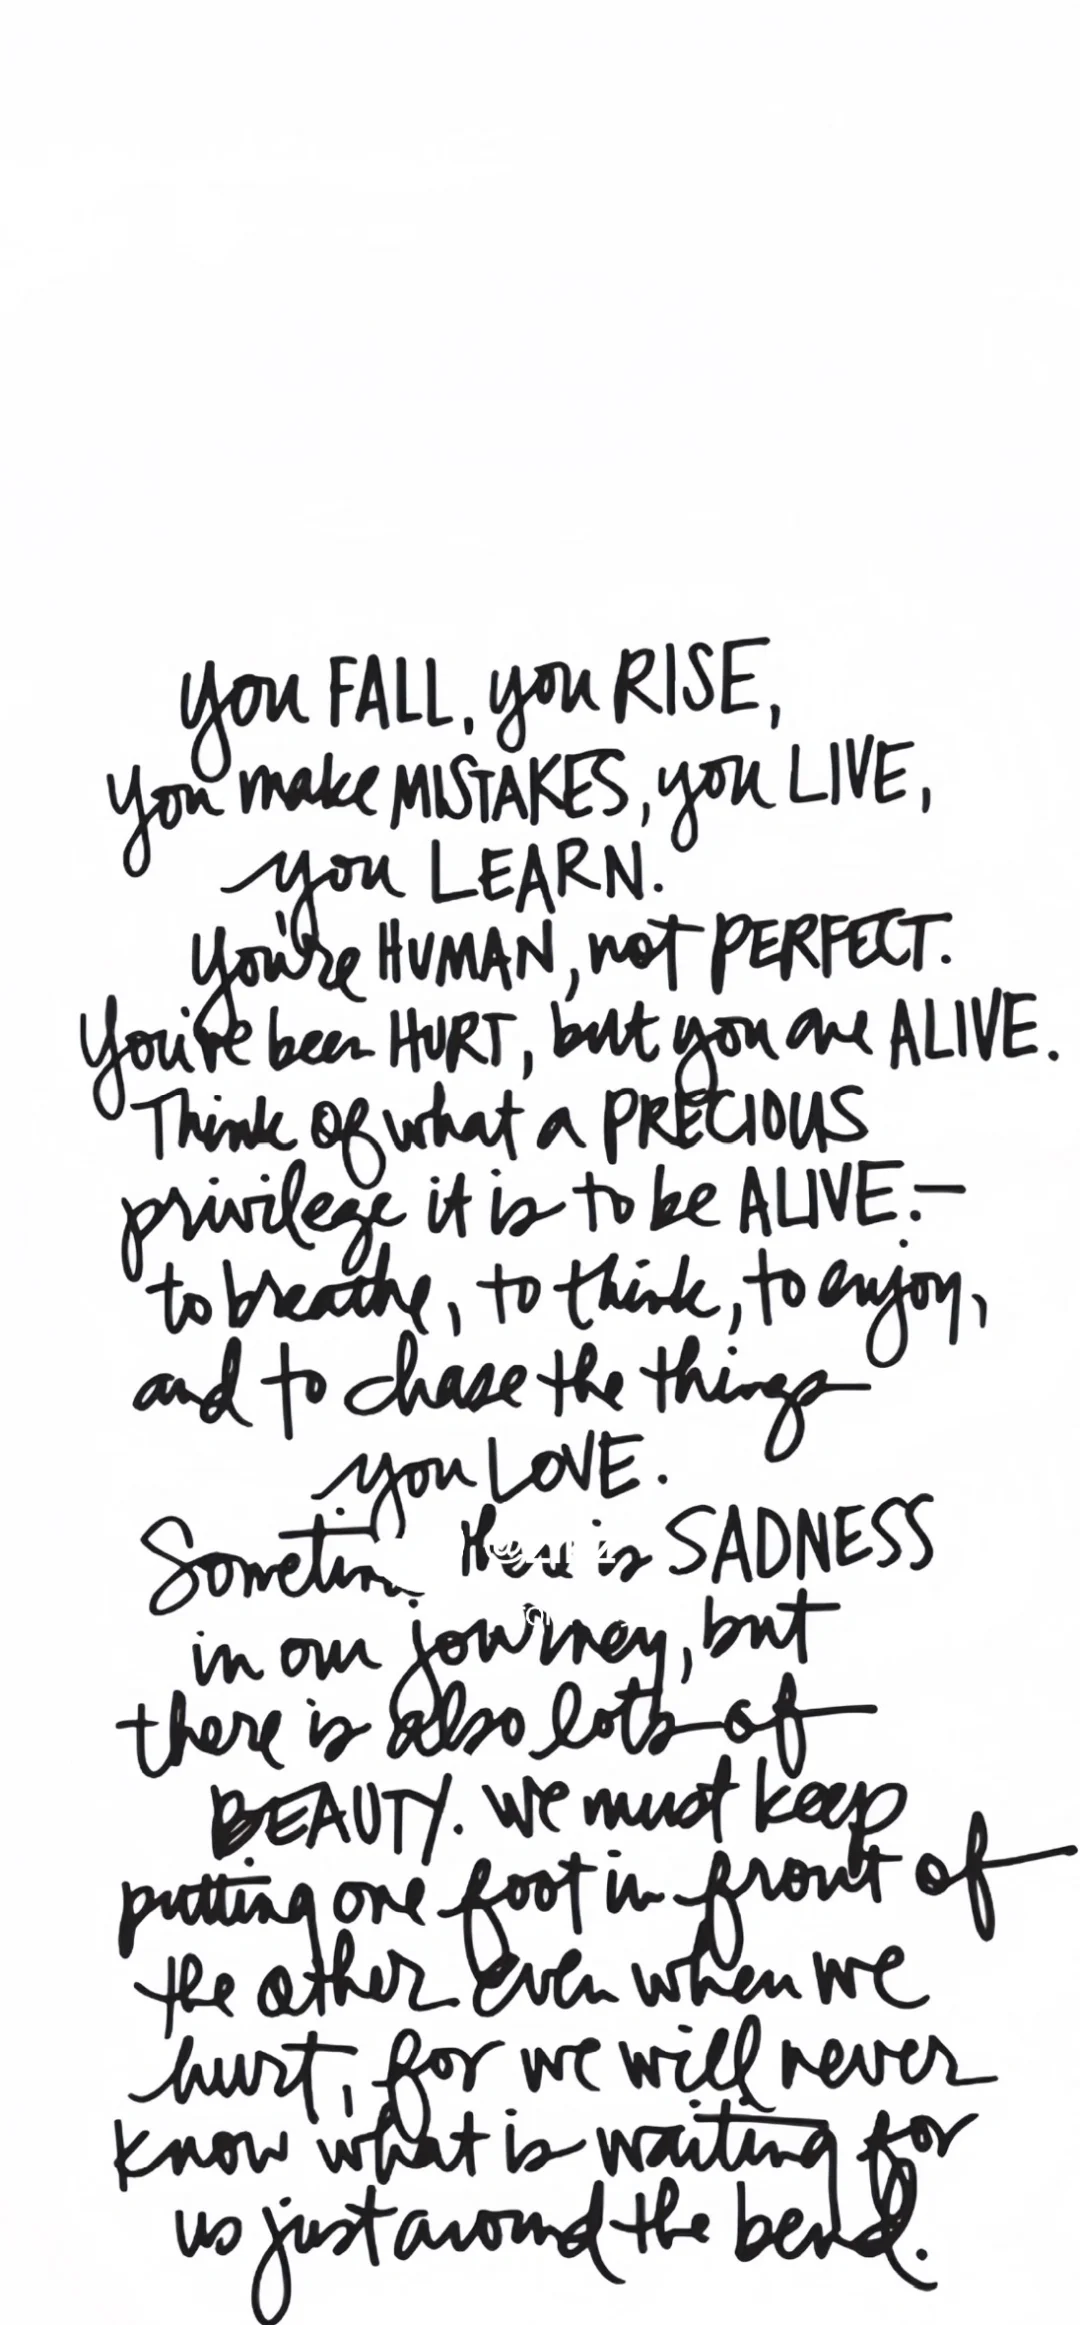 you FALL, you RISE,
you make MISTAKES, you LIVE,
you LEARN.
you're HUMAN, not PERFECT.
You've been HURT, but you are ALIVE.
Think of what a PRECIOUS
privilege it is to be ALIVE. —
to breathe, to think, to enjoy,
and to chase the things
you LOVE.
there is SADNESS
in our journey, but
there is also lots of
BEAUTY. We must keep
putting one foot in front of
the other even when we
hurt, for we will never
know what is waiting for
us just around the bend.